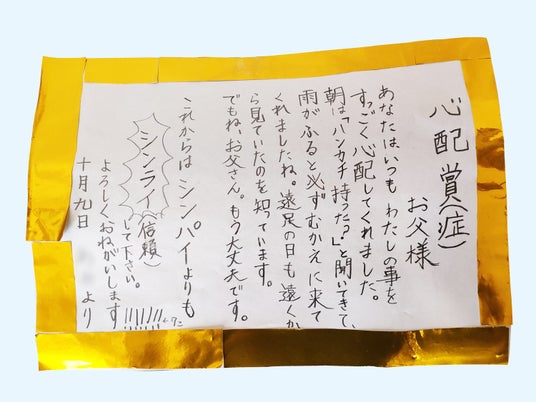 心配賞(症)
お父様
あなたはいつもわたしの事を
すっごく心配してくれました。
朝は「ハンカチ持った?」と聞いてきて、
雨がふると必ずむかえに来て
くれましたね。遠足の日も遠くか
ら見ていたのを知っています。
でもね、お父さん。もう大丈夫です。
これからはシンパイよりも
シンライ(信頼)
して下さい。
よろしくおねがいします
十月九日
より